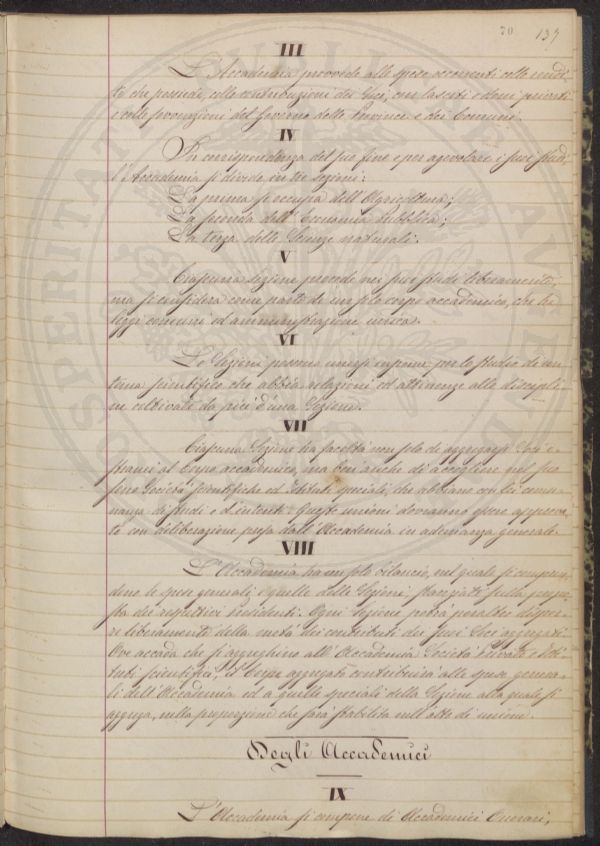 70 137
III
L'Accademia provvede alle spese occorrenti colle rendi-
te che possiede, colle contribuzioni dei Soci, con lasciti e doni privati
e colle provvigioni del Governo delle Provincie e dei Comuni.
IV
In corrispondenza del suo fine e per agevolare i suoi studi,
l'Accademia si divide in tre Sezioni:
La prima si occupa dell'Agricoltura;
La seconda dell'Economia pubblica;
La terza delle Scienze naturali.
V
Ciascuna Sezione procede nei suoi studi liberamente,
ma si considera come parte di un solo corpo accademico, che ha
leggi comuni ed amministrazione unica.
VI
Le Sezioni possono unirsi insieme per lo studio di un
tema scientifico che abbia relazioni ed attinenze alle discipli-
ne coltivate da più d'una Sezione.
VII
Ciascuna Sezione ha facoltà non solo di aggregarsi Soci e-
stranei al Corpo accademico, ma ben anche di accogliere nel suo
seno Società scientifiche ed Istituti speciali, che abbiano con lei comu-
nanza di studi e d'intenti. Queste unioni dovranno essere approva-
te con deliberazione presa dall'Accademia in adunanza generale.
VIII
L'Accademia ha un solo bilancio, nel quale si compren-
dono le spese generali e quelle delle Sezioni, stanziate sulla propo-
sta dei rispettivi Presidenti. Ogni Sezione potrà peraltro dispor-
re liberamente della metà dei contributi dei suoi Soci aggregati.
Ove accada che si aggreghino all'Accademia Società private e Isti-
tuti scientifici, il Corpo aggregato contribuirà alle spese genera-
li dell'Accademia ed a quelle speciali della Sezione alla quale si
aggrega, nella proporzione che sarà stabilita nell'atto di unione.
Degli Accademici
IX
L'Accademia si compone di Accademici Onorari,